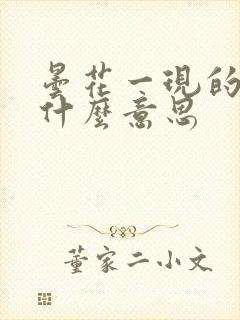 曇花一現的
什麼意思
董家二小文